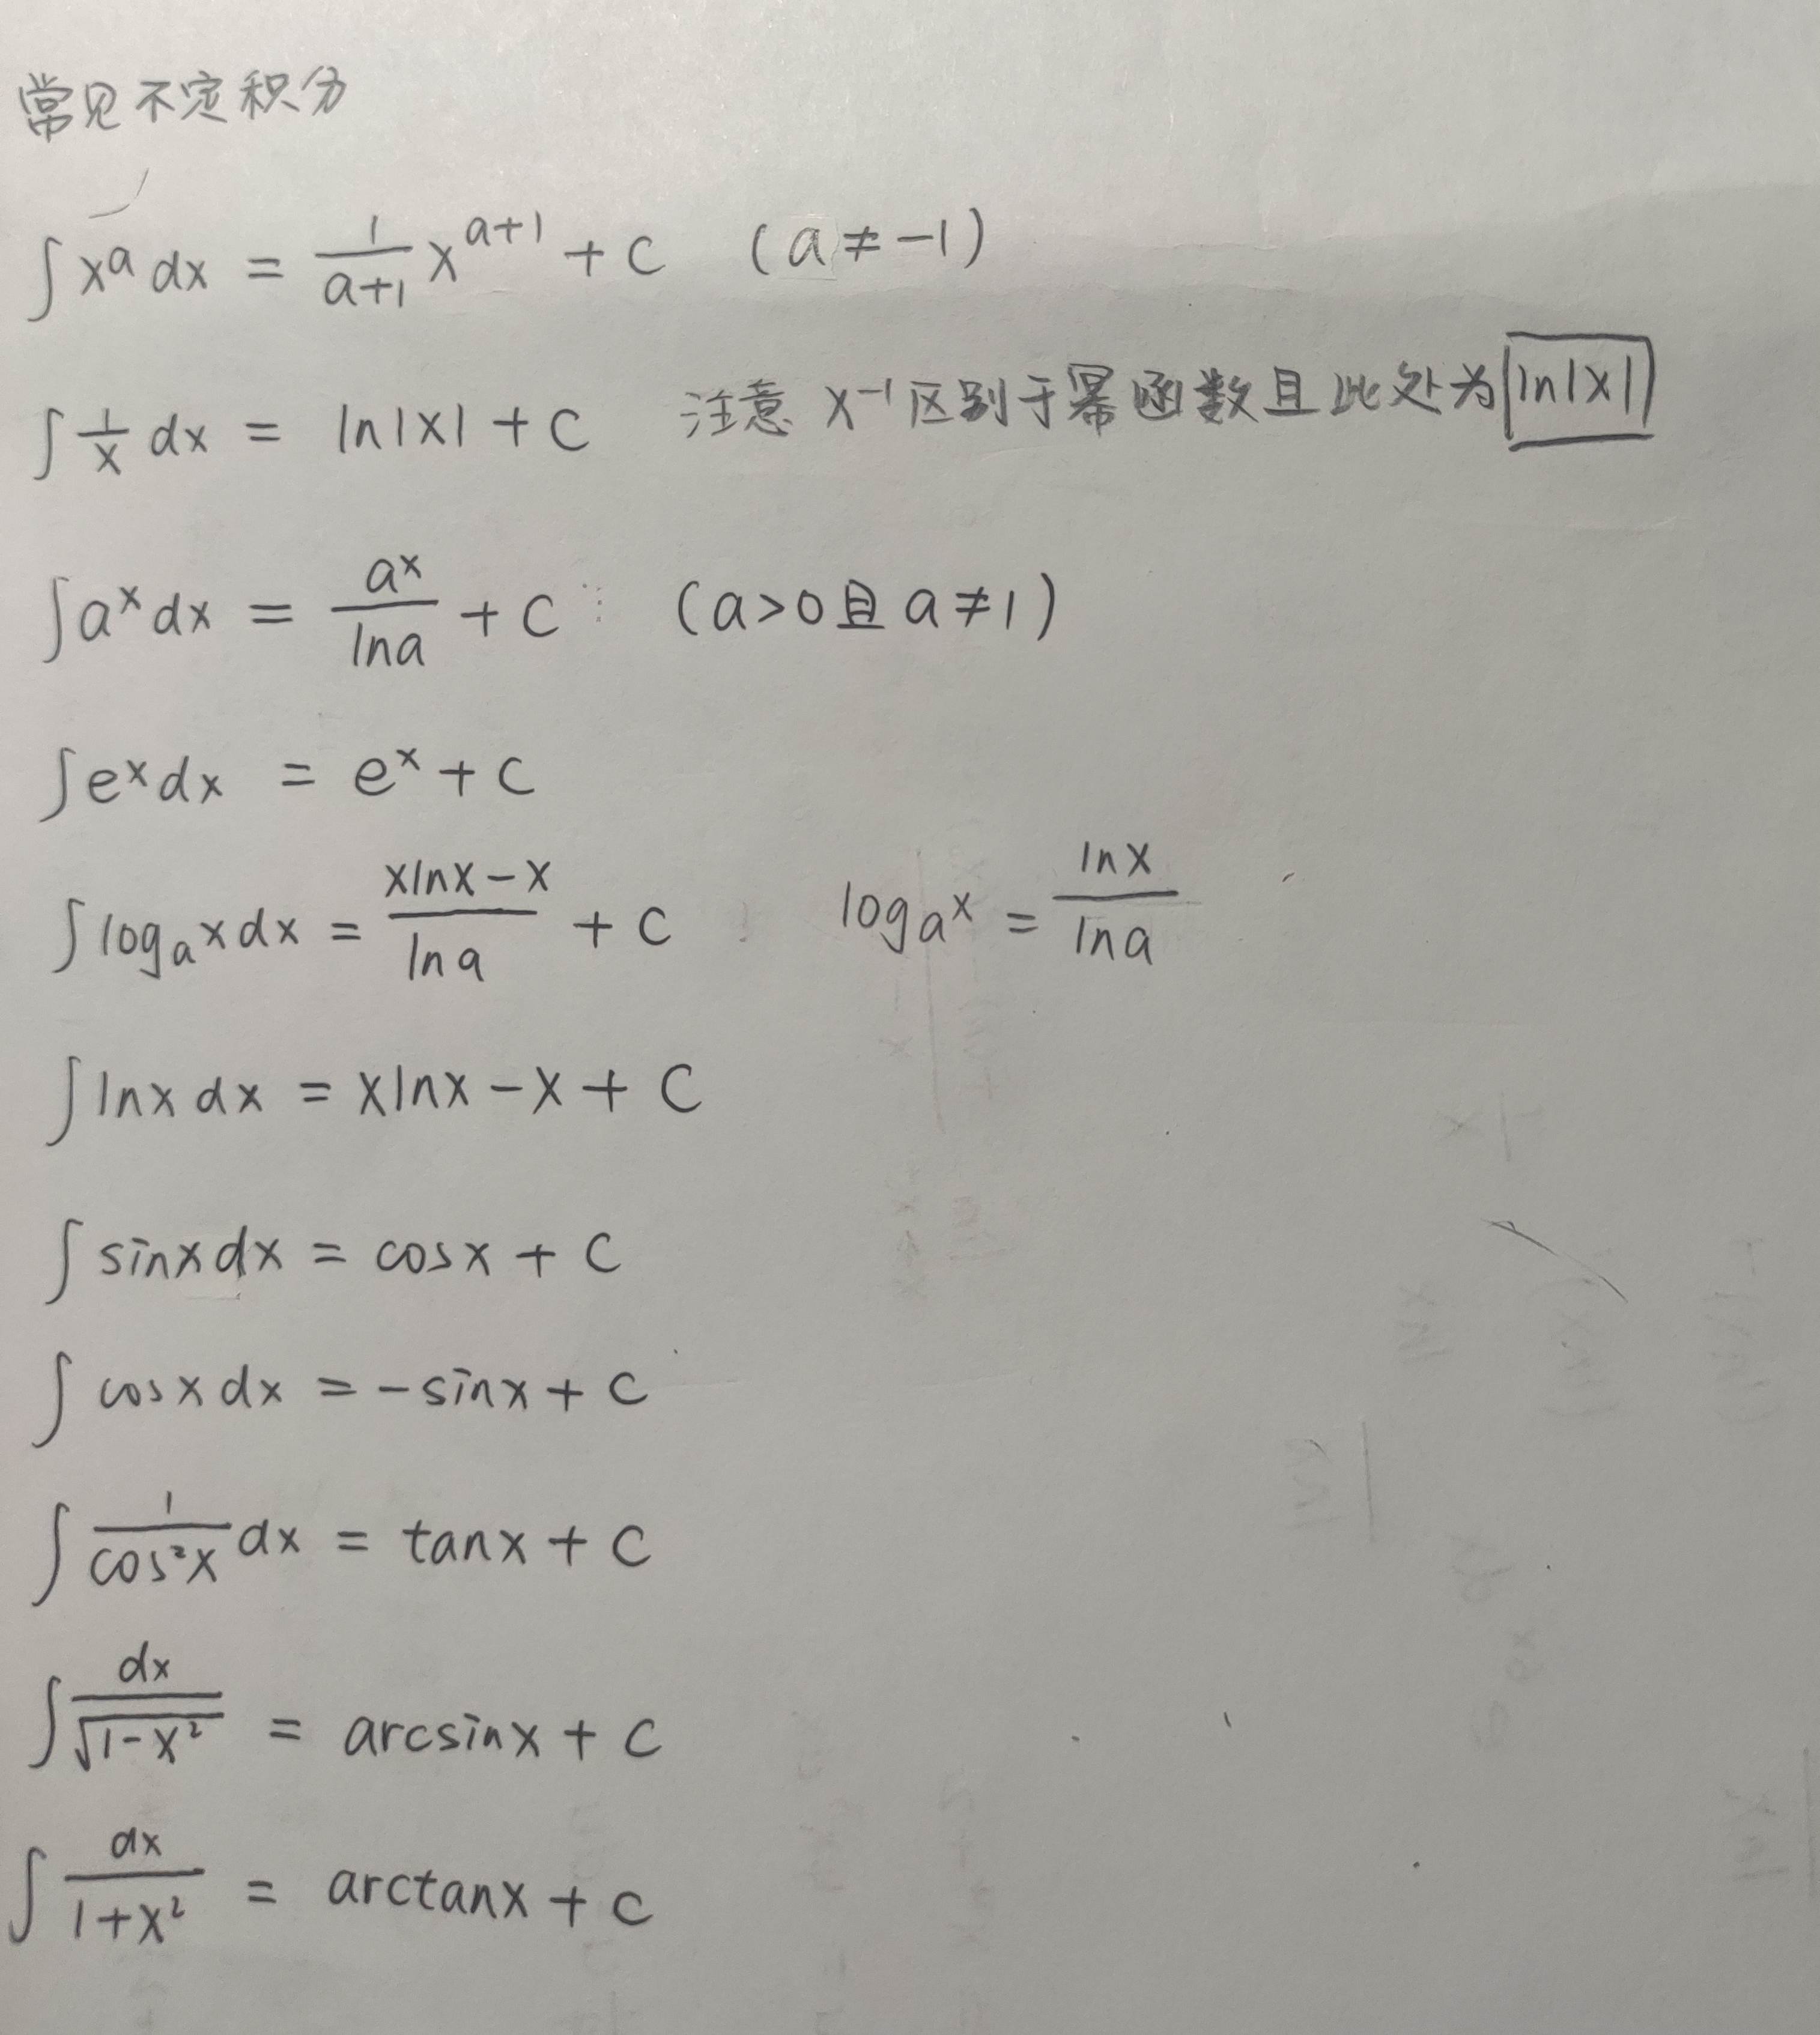 常见不定积分
∫x^a dx = \frac{1}{a+1} x^{a+1} + C (a ≠ -1)
∫\frac{1}{x} dx = ln|x| + C 注意 x^{-1} 区别于幂函数且此处为 ln|x|
∫a^x dx = \frac{a^x}{lna} + C (a>0且a≠1)
∫e^x dx = e^x + C
∫log_a x dx = \frac{xlnx-x}{lna} + C log_a x = \frac{lnx}{lna}
∫lnx dx = xlnx - x + C
∫sinx dx = cosx + C
∫cosx dx = -sinx + C
∫\frac{1}{cos²x} dx = tanx + C
∫\frac{dx}{\sqrt{1-x²}} = arcsinx + C
∫\frac{dx}{1+x²} = arctanx + C